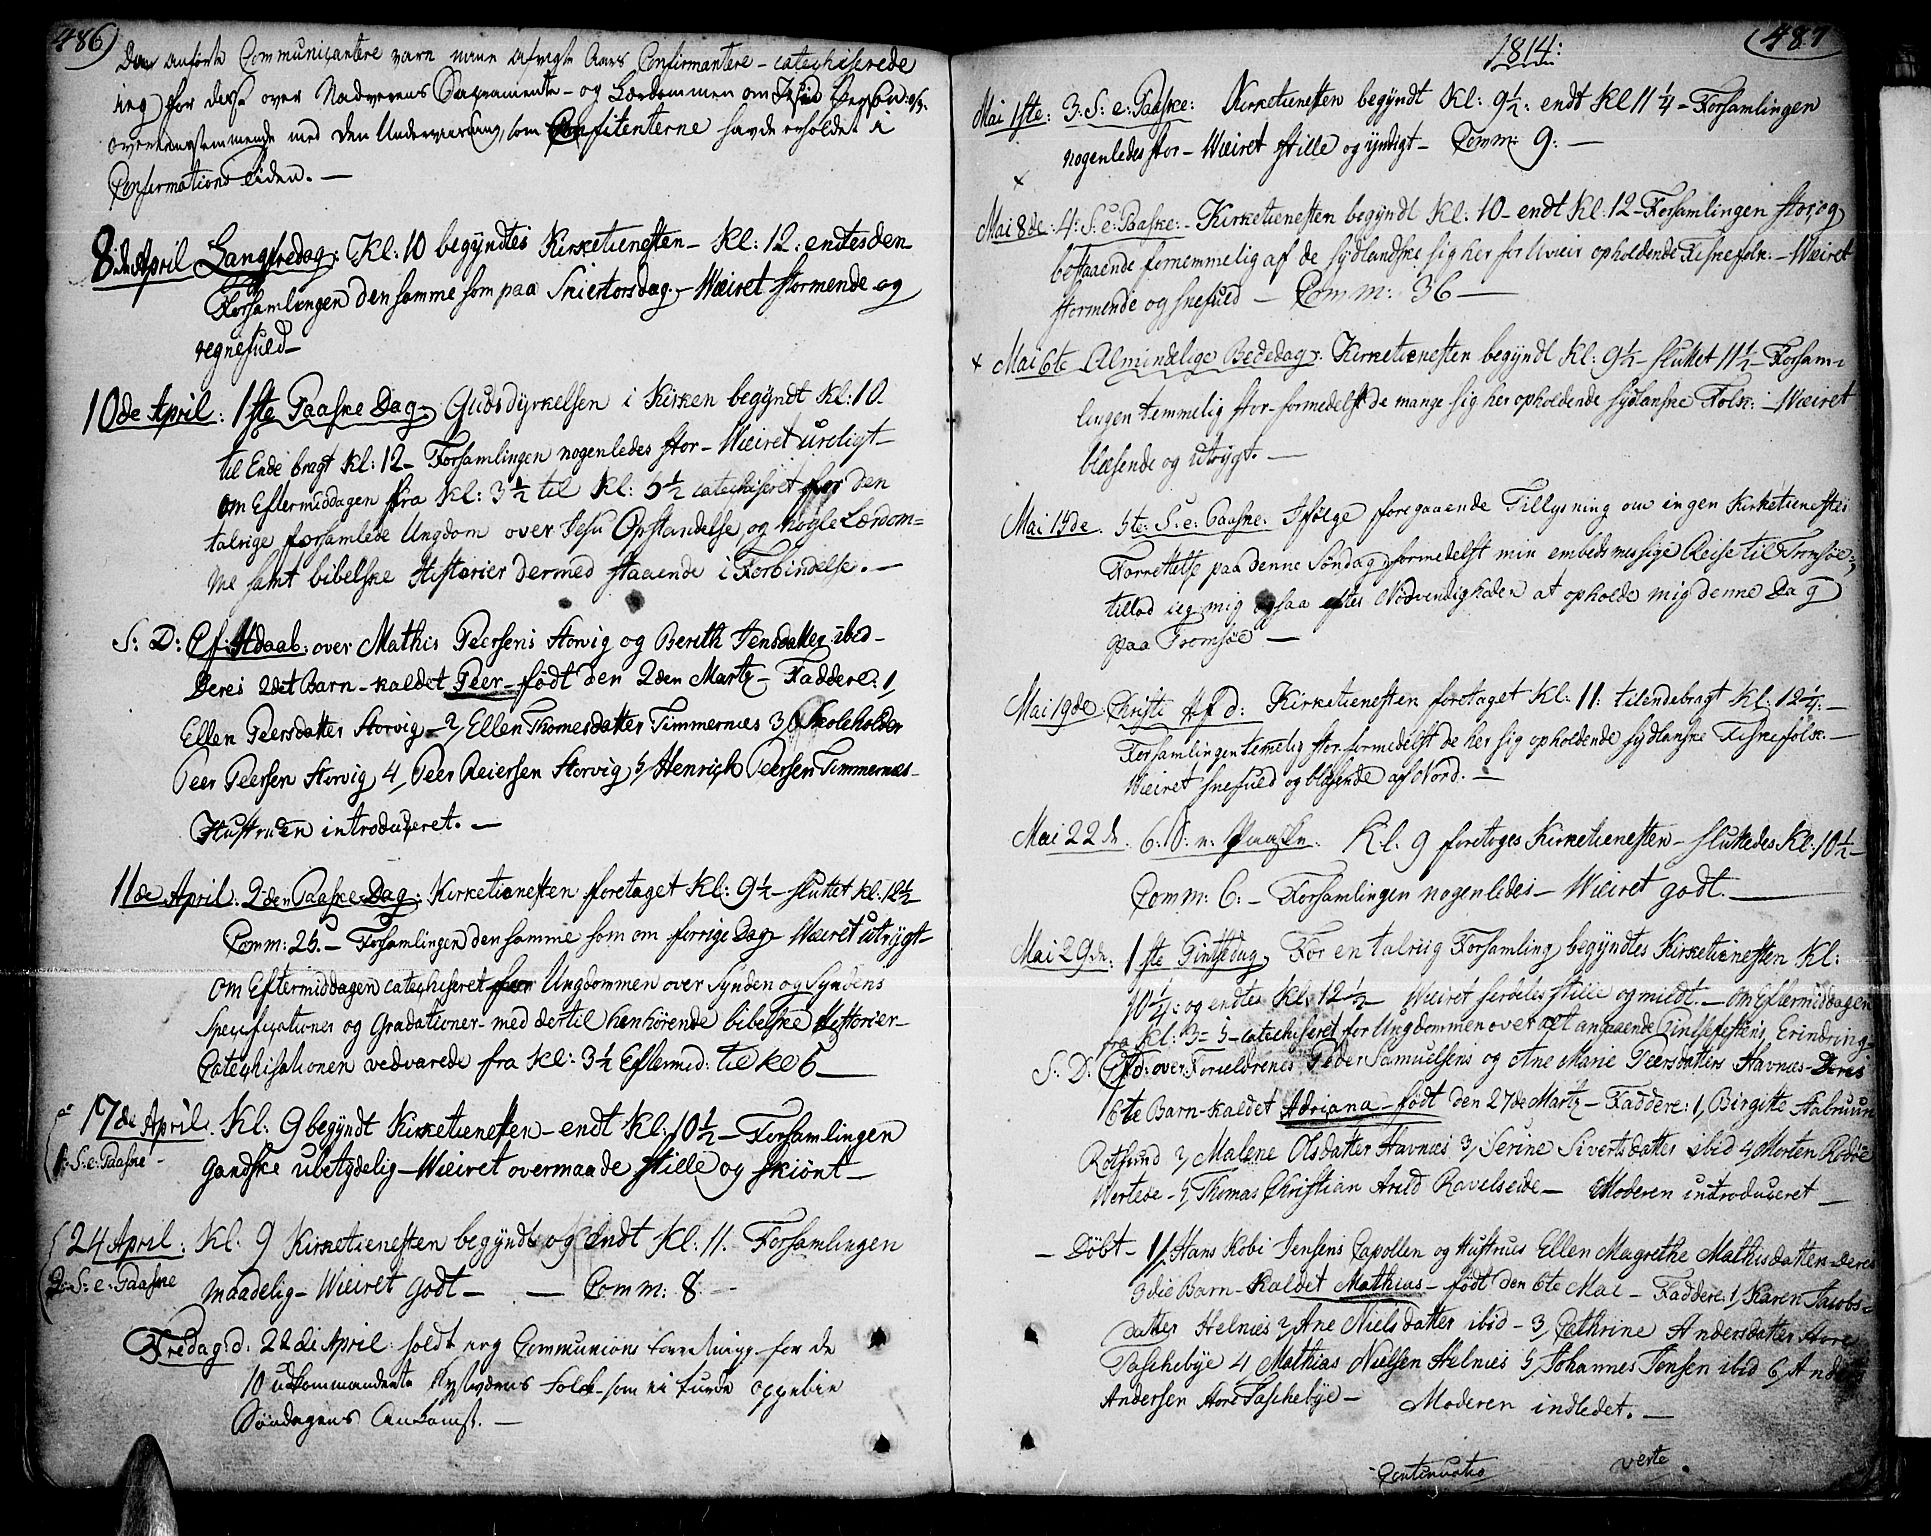 486
De anførte Communicantere varn næun afvigte Aars Confirmantere - catechiserede
ieg for disse over Nadverens Sacramente - og Lærdommen om Jesu Person:
overeensstemmende med den Underviisning, som Confitenterne havde erholdet i
Confirmations Tiden. -
8de April Langfredag: Kl: 10 begyndtes Kirketienesten - Kl: 12. endtes den
Forsamlingen den samme som paa Skiertorsdag - Wæiret stormende og
regnefuld -
10de April: 1ste Paaske Dag. Gudsdyrkelsen i Kirken begyndt Kl: 10.
til Ende bragt Kl: 12 - Forsamlingen nogenledes stor - Wæiret uroligt -
Om Eftermiddagen fra Kl: 3½ til Kl: 5½ catechiseret for den
talrige forsamlede Ungdom over Jesu Opstandelse og nogle Lærdom=
me samt bibelske Historier dermed staaende i Forbindelse. -
S: D: Cf. Hdaab: over Mathis Peersens Storvig og Berith Jensdatter ibid -
Deres 2det Barn - kaldet Peer - født den 2den Marty - Faddere: 1,
Ellen Peersdatter Storvig - 2, Ellen Thomesdatter Timmernæs 3, Skoleholder
Peer Peersen Storvig 4, Peer Reiersen Storvig 5, Henrich Peersen Timmernæs -
Hustruen introduceret. -
11de April. 2den Paaske Dag: Kirketienesten foretaget Kl: 9½ - sluttet Kl: 12½
Comm: 25. - Forsamlingen den samme som om forrige Dag - Wæiret utrygt -
Om Eftermiddagen catechiseret for Ungdommen over Synden og Syndens
Specificationer og Gradationer - med dertil henhørende bibelske Historier -
Catechisationen vedvarede fra Kl: 3½ Eftermid: til Kl 5 -
17de April. Kl: 9 begyndt Kirketienesten - endt Kl: 10½ - Forsamlingen
1: S: e: Paaske -
Gandske ubetydelig - Wæiret overmaade stille og skiønt -
24 April: Kl: 9 Kirketienesten begyndt og endt Kl: 11. Forsamlingen
2: S: e: Paaske
maadelig - Wæiret godt - - Comm: 8. -
Fredag d: 22de April: holdt ieg Communions Forretning for de
10 udkommanderte Kystværns Folk - som ei turde oppebie
Søndagens Ankomst. -
487
1814:
Mai 1ste: 3. S: e: Paaske: Kirketienesten begyndt Kl: 9½: endt Kl 11¼ - Forsamlingen
nogenledes stor - Wæiret stille og yndigt - Comm: 9: -
x
Mai 8de: 4: S: e: Paaske: - Kirketienesten begyndt Kl: 10 - endt Kl: 12 - Forsamlingen stor og
bestaaende fornemmelig af de sydlandske sig her for Uveir opholdende Fiskefolk: - Wæiret
stormende og snefuld - Comm: 36 -
x Mai 6te Almindelige Bededag: Kirketienesten begyndt Kl: 9½ - sluttet 11½ - Forsam=
lingen temmelig stor - formedelst de mange sig her opholdende sydlanske Folk: - Wæiret
blæsende og utrygt. -
Mai 15de. 5te: S: e: Paaske: Ifølge foregaaende Tillysning om ingen Kirketienestes
Forrettelse paa denne Søndag formedelst min embedsmessige Reise til Tromsøe:
tillod ieg mig ogsaa efter Nødvendigheden at opholde mig denne Dag
paa Tromsøe -
Mai 19de: Christi Hf d: Kirketienesten foretaget Kl: 11: tilendebragt Kl: 12¼: -
Forsamlingen temelig stor formedelst de her sig opholdende sydlanske Fiskefolk: -
Wæiret snefuld og blæsende af Nord. -
Mai 22de. 6. S. e: Paaske. Kl. 9 foretoges Kirketienesten - sluttedes Kl: 10½ -
Comm: 6: - Forsamlingen nogenledes - Wæiret godt. -
Mai 29de: 1ste Pintsedag, For en talrig Forsamling begyndtes Kirketienesten Kl:
10¼: og endtes Kl: 12½ - Wæiret serdeles stille og mildt. - Om Eftermiddagen
fra Kl: 3 = 5 - catechiseret for Ungdommen over det angaaende Pintsefestens Erindring -
S: D: Cfd: over Forældrenes Peder Samuelsens og Ane Marie Peersdatters Havnæs - Deres
6te Barn - kaldet Adriana - født den 27de Marty - Faddere: 1, Birgitte
Rotsund 2, Malene Olsdatter Havnæs 3, Serine Sivertsdatter ibid 4, Morten Rodøe
Wortede - 5, Thomas Christian Arild Ravelseide - Moderen introduceret -
- Døbt - 1, Hans Kobi Jensens Capollen og Hustrues Ellen Magrethe Mathisdatter - deres
3die Barn - Kaldet Mathias - født den 6te Mai - Faddere: 1, Karen Jacobs=
datter Helnæs 2, Ane Nielsdatter ibid - 3, Cathrine Andersdatter Store
Taschebye 4 Mathias Nielsen Helnæs 5, Johannes Jensen ibid 6, Anders
Andersen Store Taschebye - Moderen indledet. -
Continuatio verte.